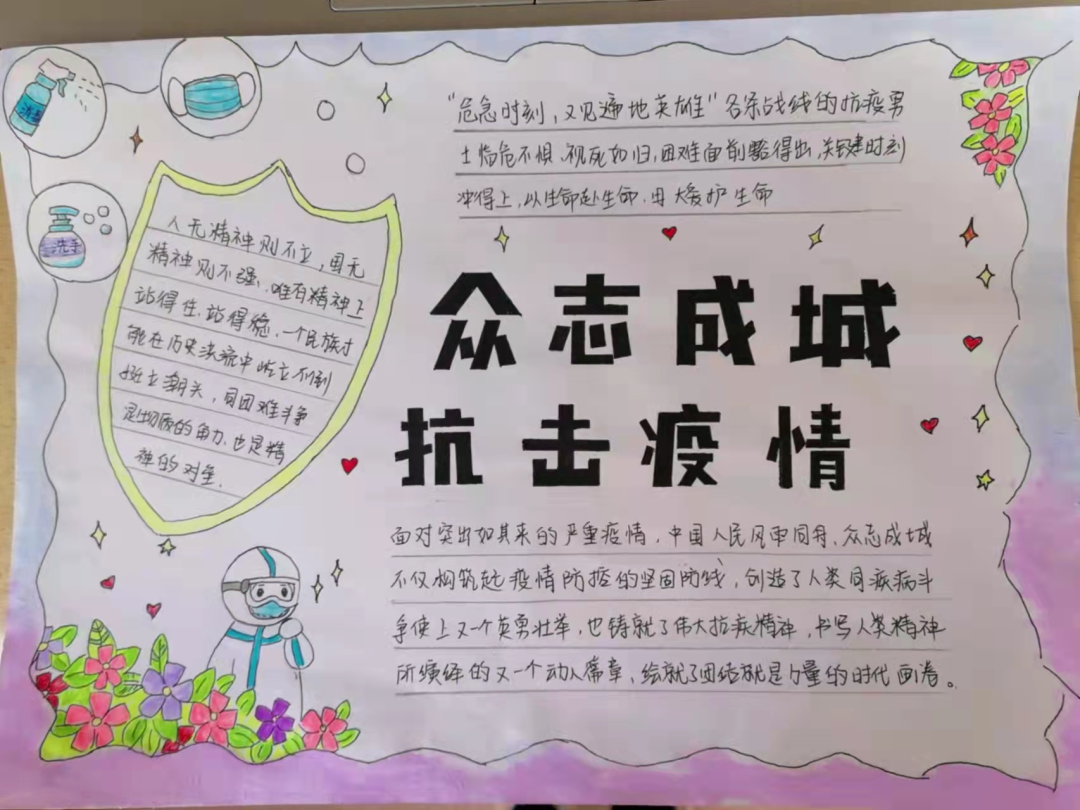 消毒
洗手
"危急时刻，又见遍地英雄"各条战线的抗疫勇
士临危不惧、视死如归，困难面前豁得出、关键时刻
冲得上，以生命赴生命，用大爱护生命
人无精神则不立，国无
精神则不强，唯有精神上
站得住、站得稳，一个民族才
能在历史洪流中屹立不倒
挺立潮头，同困难斗争
是物质的角力，也是精
神的对垒.
众志成城
抗击疫情
面对突出如其来的严重疫情，中国人民风雨同舟、众志成城
不仅构筑起疫情防控的坚固防线，创造了人类同疾病斗
争史上又一个英勇壮举，也铸就了伟大抗疾精神，书写人类精神
所演绎的又一个动人篇章、绘就了团结就是力量的时代画卷。